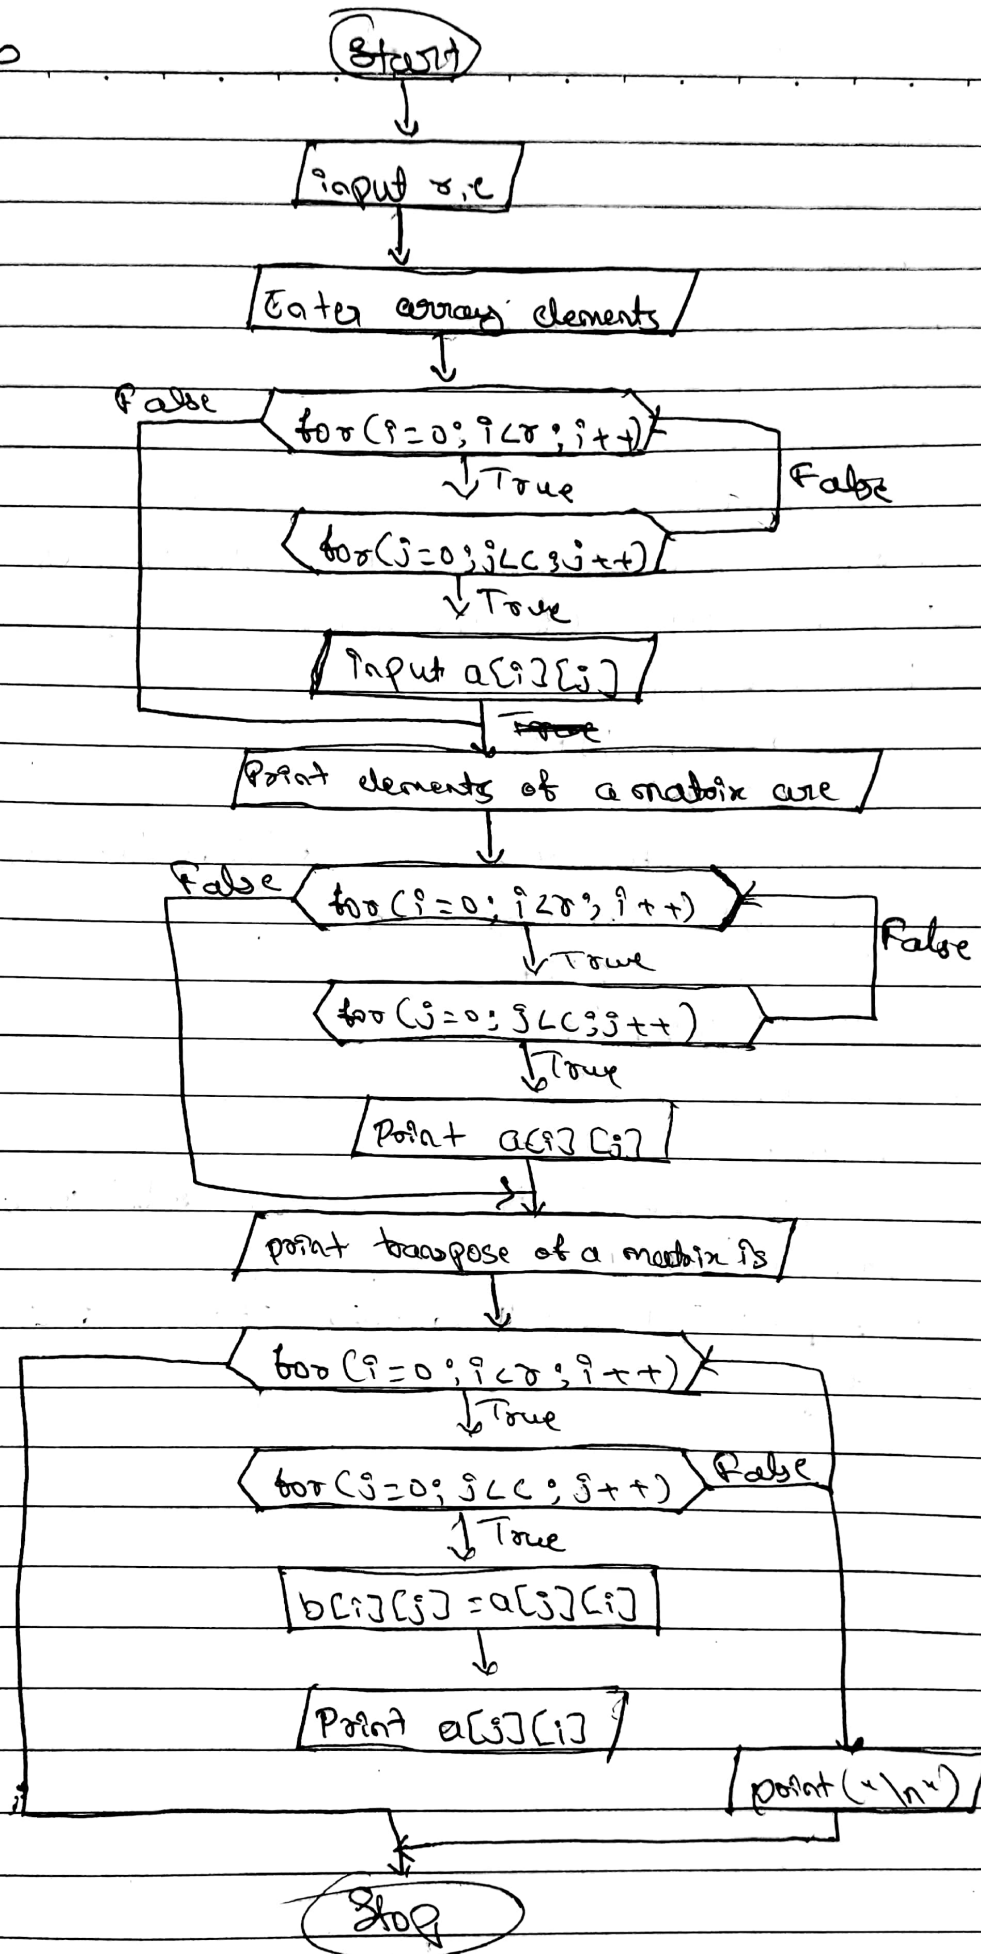 Start
input r,c
Enter array elements
False
for(i=0; i<r; i++)
True
False
for(j=0; j<c; j++)
True
input a[i][j]
True
Print elements of a matrix are
False
for(i=0; i<r; i++)
False
True
for(j=0; j<c; j++)
True
Print a[i][j]
print transpose of a matrix is
for(i=0; i<r; i++)
True
for(j=0; j<c; j++)
False
True
b[i][j] = a[j][i]
Print a[j][i]
print("\n")
Stop